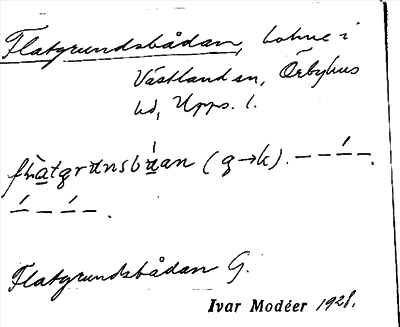 Flatgrundsbådan, bohue i
Västland sn, Örbyhus
hd, Upps. l.
flatgrunsbåan (g→k). – – –́ –.
–́ – –́ –.
Flatgrundsbådan G.
Ivar Modéer 1928.